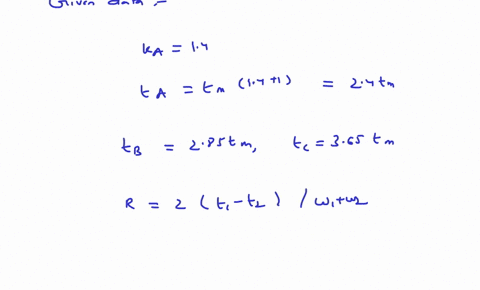 Given data :-
kA = 1.4
tA = tm (1.4+1) = 2.4tm
tB = 2.85tm, tc = 3.65 tm
R = 2 (t1-t2) / ω1+ω2